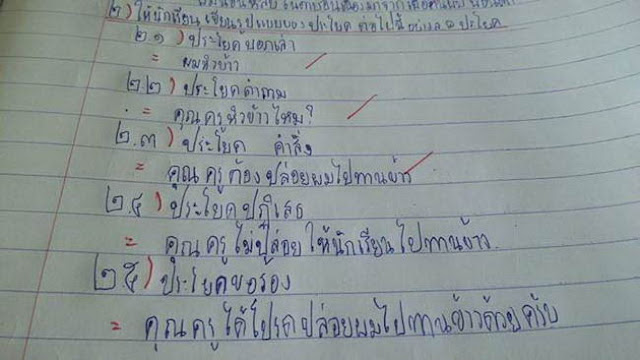 ๒) ให้นักเรียนเขียนรูปแบบของประโยค ต่อไปนี้ อย่างละ ๑ ประโยค
๒.๑) ประโยคบอกเล่า
= ผมหิวข้าว
๒.๒) ประโยคคำถาม
= คุณครูหิวข้าวไหม?
๒.๓) ประโยค คำสั่ง
= คุณครูต้องปล่อยผมไปทานข้าว
๒.๔) ประโยคปฏิเสธ
= คุณครูไม่ปล่อยให้นักเรียนไปทานข้าว.
๒.๕) ประโยคขอร้อง
= คุณครูได้โปรดปล่อยผมไปทานข้าวด้วยครับ